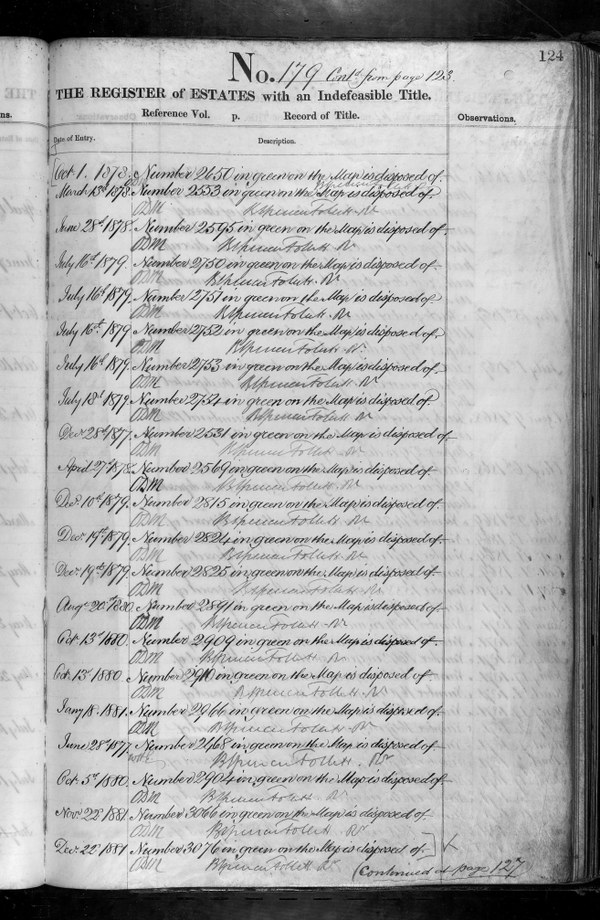 124
No. 179 Contd from page 123
THE REGISTER of ESTATES with an Indefeasible Title.
ns.
Reference Vol. p. Record of Title.
Observations.
Date of Entry.
Description.
Oct 1. 1878. Number 2650 in green on the Map is disposed of.
March 13th 1878. Number 2553 in green on the Map is disposed of.
ODM BSpencer Follett. Rr
June 28th 1878. Number 2595 in green on the Map is disposed of.
ODM BSpencer Follett Rr
July 16th 1879. Number 2750 in green on the Map is disposed of.
ODM BSpencer Follett. Rr
July 16th 1879. Number 2751 in green on the Map is disposed of
ODM BSpencer Follett. Rr
July 16th 1879 Number 2752 in green on the Map is disposed of
ODM BSpencer Follett. Rr.
July 16th 1879. Number 2753 in green on the Map is disposed of.
ODM BSpencer Follett. Rr
July 18th 1879 Number 2754 in green on the Map is disposed of
ODM BSpencer Follett. Rr
Decr 28th 1877. Number 2531 in green on the Map is disposed of.
ODM BSpencer Follett Rr
April 27th 1878. Number 2569 in green on the Map is disposed of.
ODM BSpencer Follett. Rr
Decr 10th 1879. Number 2815 in green on the Map is disposed of.
ODM BSpencer Follett. Rr
Decr 19th 1879. Number 2824 in green on the Map is disposed of.
ODM BSpencer Follett. Rr
Decr 19th 1879. Number 2825 in green on the Map is disposed of.
ODM BSpencer Follett Rr
Augt 20th 1880. Number 2891 in green on the Map is disposed of.
ODM BSpencer Follett Rr
Oct 13th 1880. Number 2909 in green on the Map is disposed of.
ODM BSpencer Follett. Rr
Oct. 13th 1880. Number 2910 in green on the Map is disposed of
ODM BSpencer Follett Rr
Jany 18. 1881. Number 2966 in green on the Map is disposed of.
ODM BSpencer Follett. Rr
June 28th 1877. Number 2468 in green on the Map is disposed of
BSpencer Follett. Rr
Oct. 5th 1880. Number 2904 in green on the Map is disposed of.
ODM BSpencer Follett. Rr
Novr 22 1881 Number 3066 in green on the Map is disposed of.
ODM BSpencer Follett. Rr
Decr 22 1881 Number 3076 in green on the Map is disposed of.
ODM BSpencer Follett Rr
(Continued at page 127